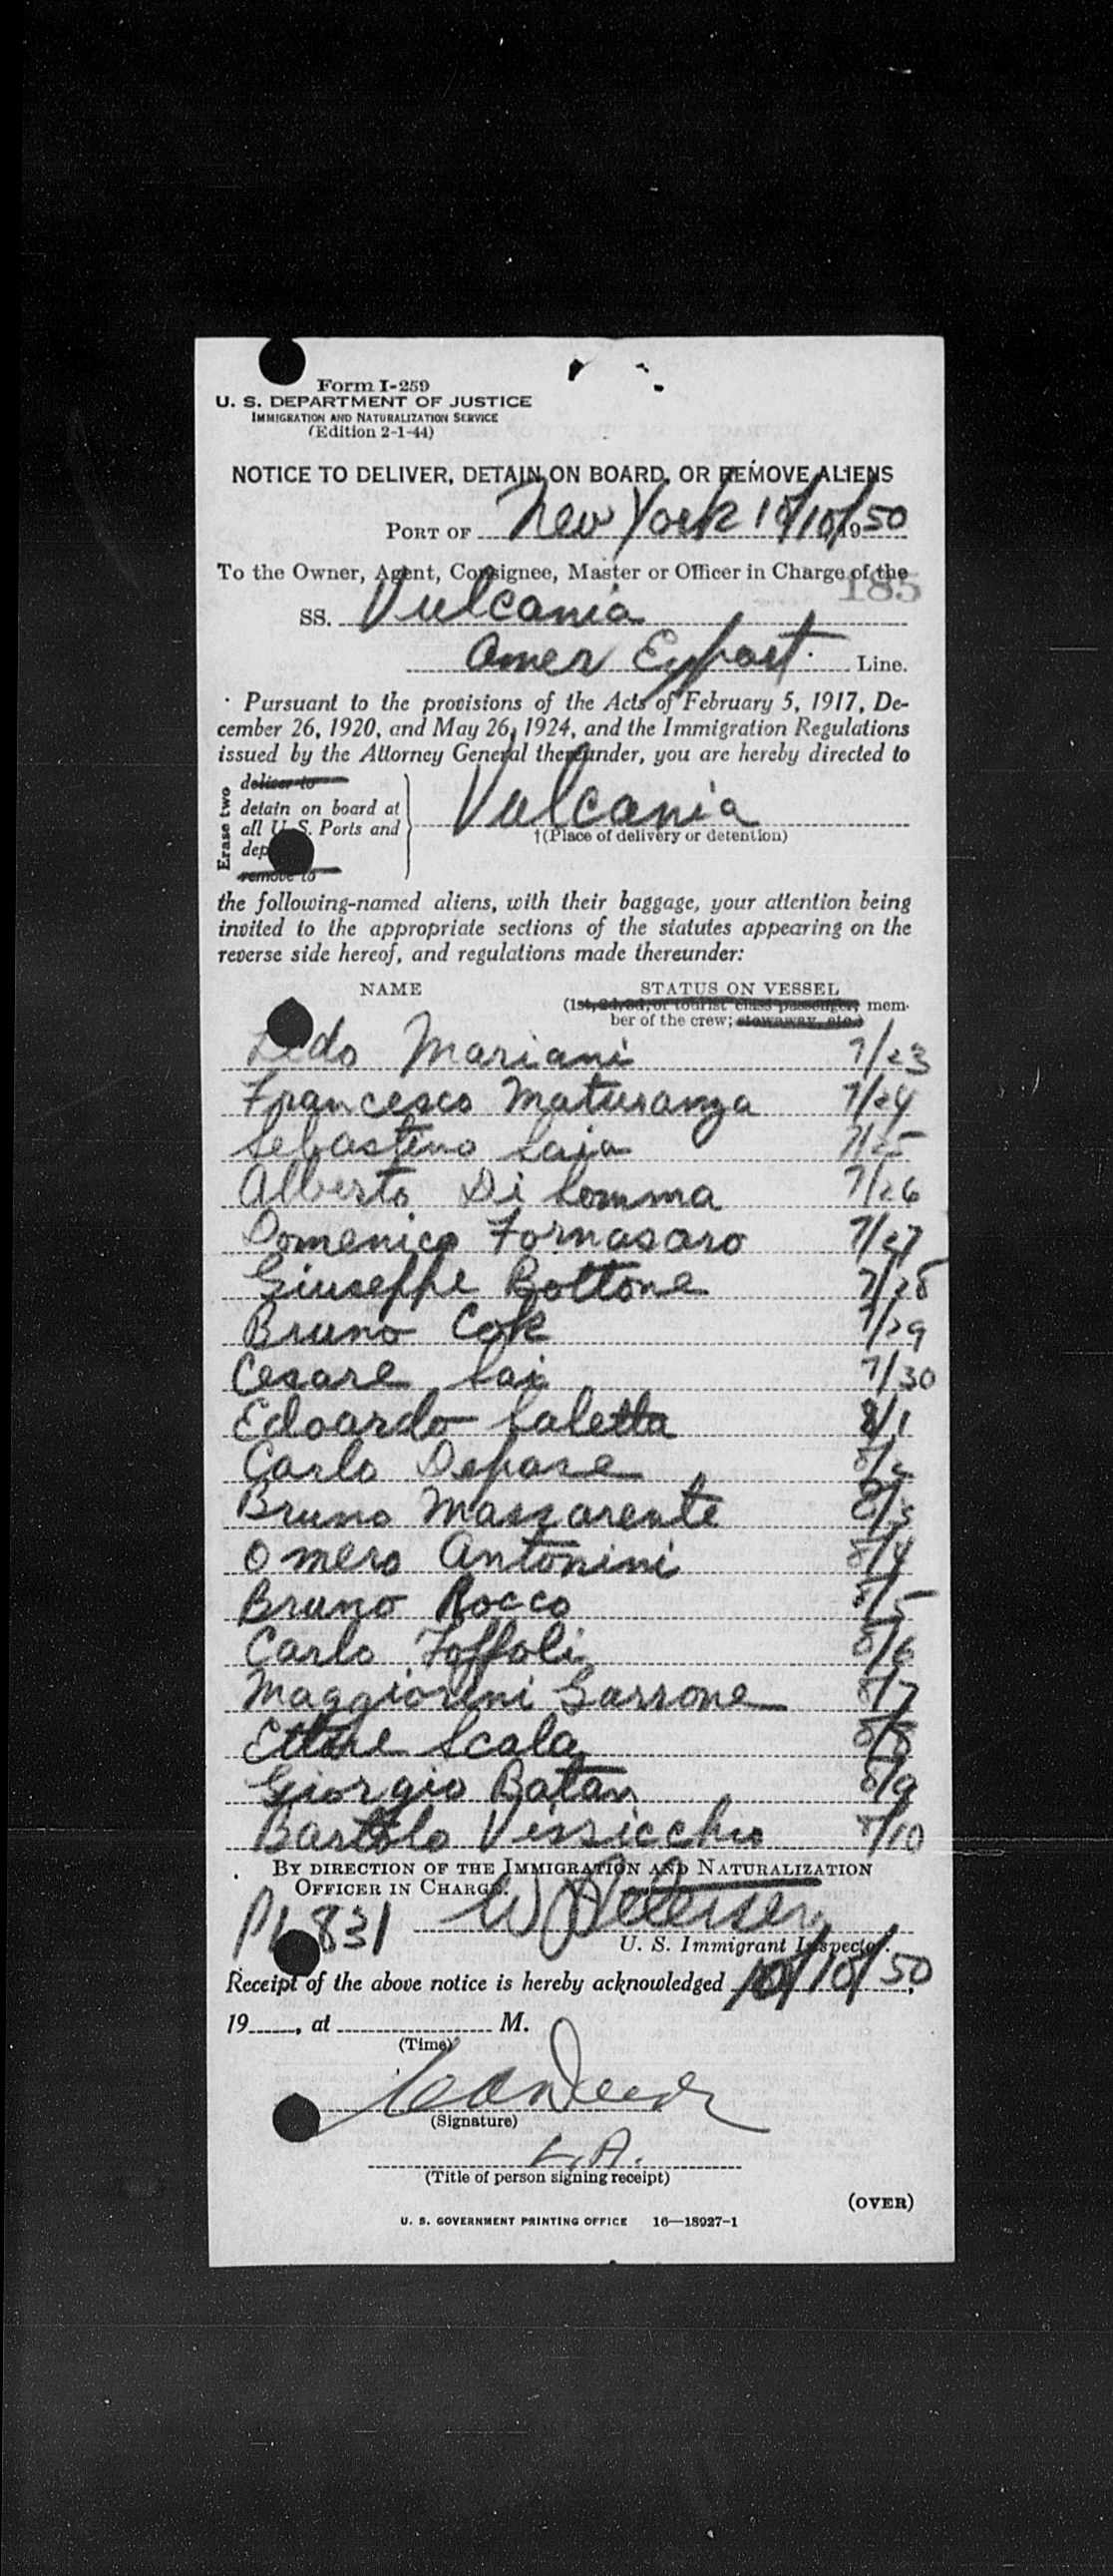 Form I-259
U. S. DEPARTMENT OF JUSTICE
IMMIGRATION AND NATURALIZATION SERVICE
(Edition 2-1-44)
NOTICE TO DELIVER, DETAIN ON BOARD, OR REMOVE ALIENS
PORT OF New York 10/10/1950
To the Owner, Agent, Consignee, Master or Officer in Charge of the
185
SS. Vulcania
Amer Export Line.
Pursuant to the provisions of the Acts of February 5, 1917, De-
cember 26, 1920, and May 26, 1924, and the Immigration Regulations
issued by the Attorney General thereunder, you are hereby directed to
Erase two
deliver to
detain on board at
all U. S. Ports and
dep
remove to
Vulcania
†(Place of delivery or detention)
the following-named aliens, with their baggage, your attention being
invited to the appropriate sections of the statutes appearing on the
reverse side hereof, and regulations made thereunder:
NAME STATUS ON VESSEL
(1st, 2d, 3d, or tourist class passenger, mem-
ber of the crew; stowaway, etc.)
Mariani 7/23
Francesco Maturanza 7/24
Sebastino Saia 7/25
Alberto Di Somma 7/26
Domenico Fornasaro 7/27
Giuseppe Bottone 7/28
Bruno Cok 7/29
Cesare Sai 7/30
Edoardo Saletta 8/1
Carlo Depase 8/2
Bruno Massarente 8/3
Omero Antonini 8/4
Bruno Rocco 8/5
Carlo Toffoli 8/6
Maggiorini Garrone 8/7
Ettore Scala 8/8
Giorgio Batan 8/9
Bartolo Vissicchio 8/10
BY DIRECTION OF THE IMMIGRATION AND NATURALIZATION
OFFICER IN CHARGE.
831 W Petersen
U. S. Immigrant Inspector.
Receipt of the above notice is hereby acknowledged 10/10/50,
19____, at ____ M.
(Time)
(Signature)
(Title of person signing receipt)
(OVER)
U. S. GOVERNMENT PRINTING OFFICE 16—18927-1